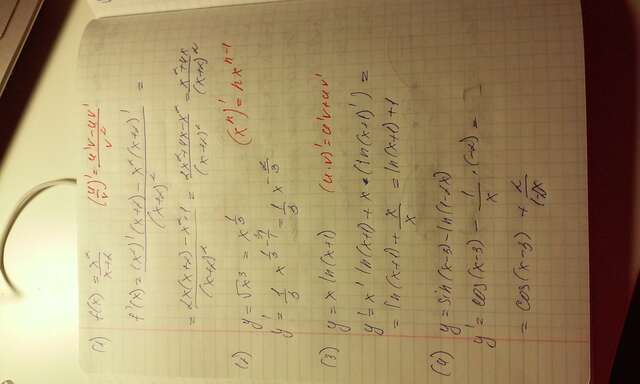 (1) f(x) = x²/(x+2) (u/v)' = (u'v - uv')/v²
f'(x) = ((x²)'(x+2) - x²(x+2)')/(x+2)² =
= (2x(x+2) - x²·1)/(x+2)² = (2x²+4x-x²)/(x+2)² = (x²+4x)/(x+2)²
(2) y = √x³ = x^(1/3) (xⁿ)' = nx^(n-1)
y' = 1/3 x^(1/3 - 3/1) = 1/3 x^(-2/3)
(3) y = x ln(x+1) (u·v)' = u'v + uv'
y' = x' ln(x+1) + x·(ln(x+1)') =
= ln(x+1) + x/x = ln(x+1) + 1
(4) y = sin(x-3) - ln(1-2x)
y' = cos(x-3) - 1/x · (-2) =
= cos(x-3) + 2/(1-2x